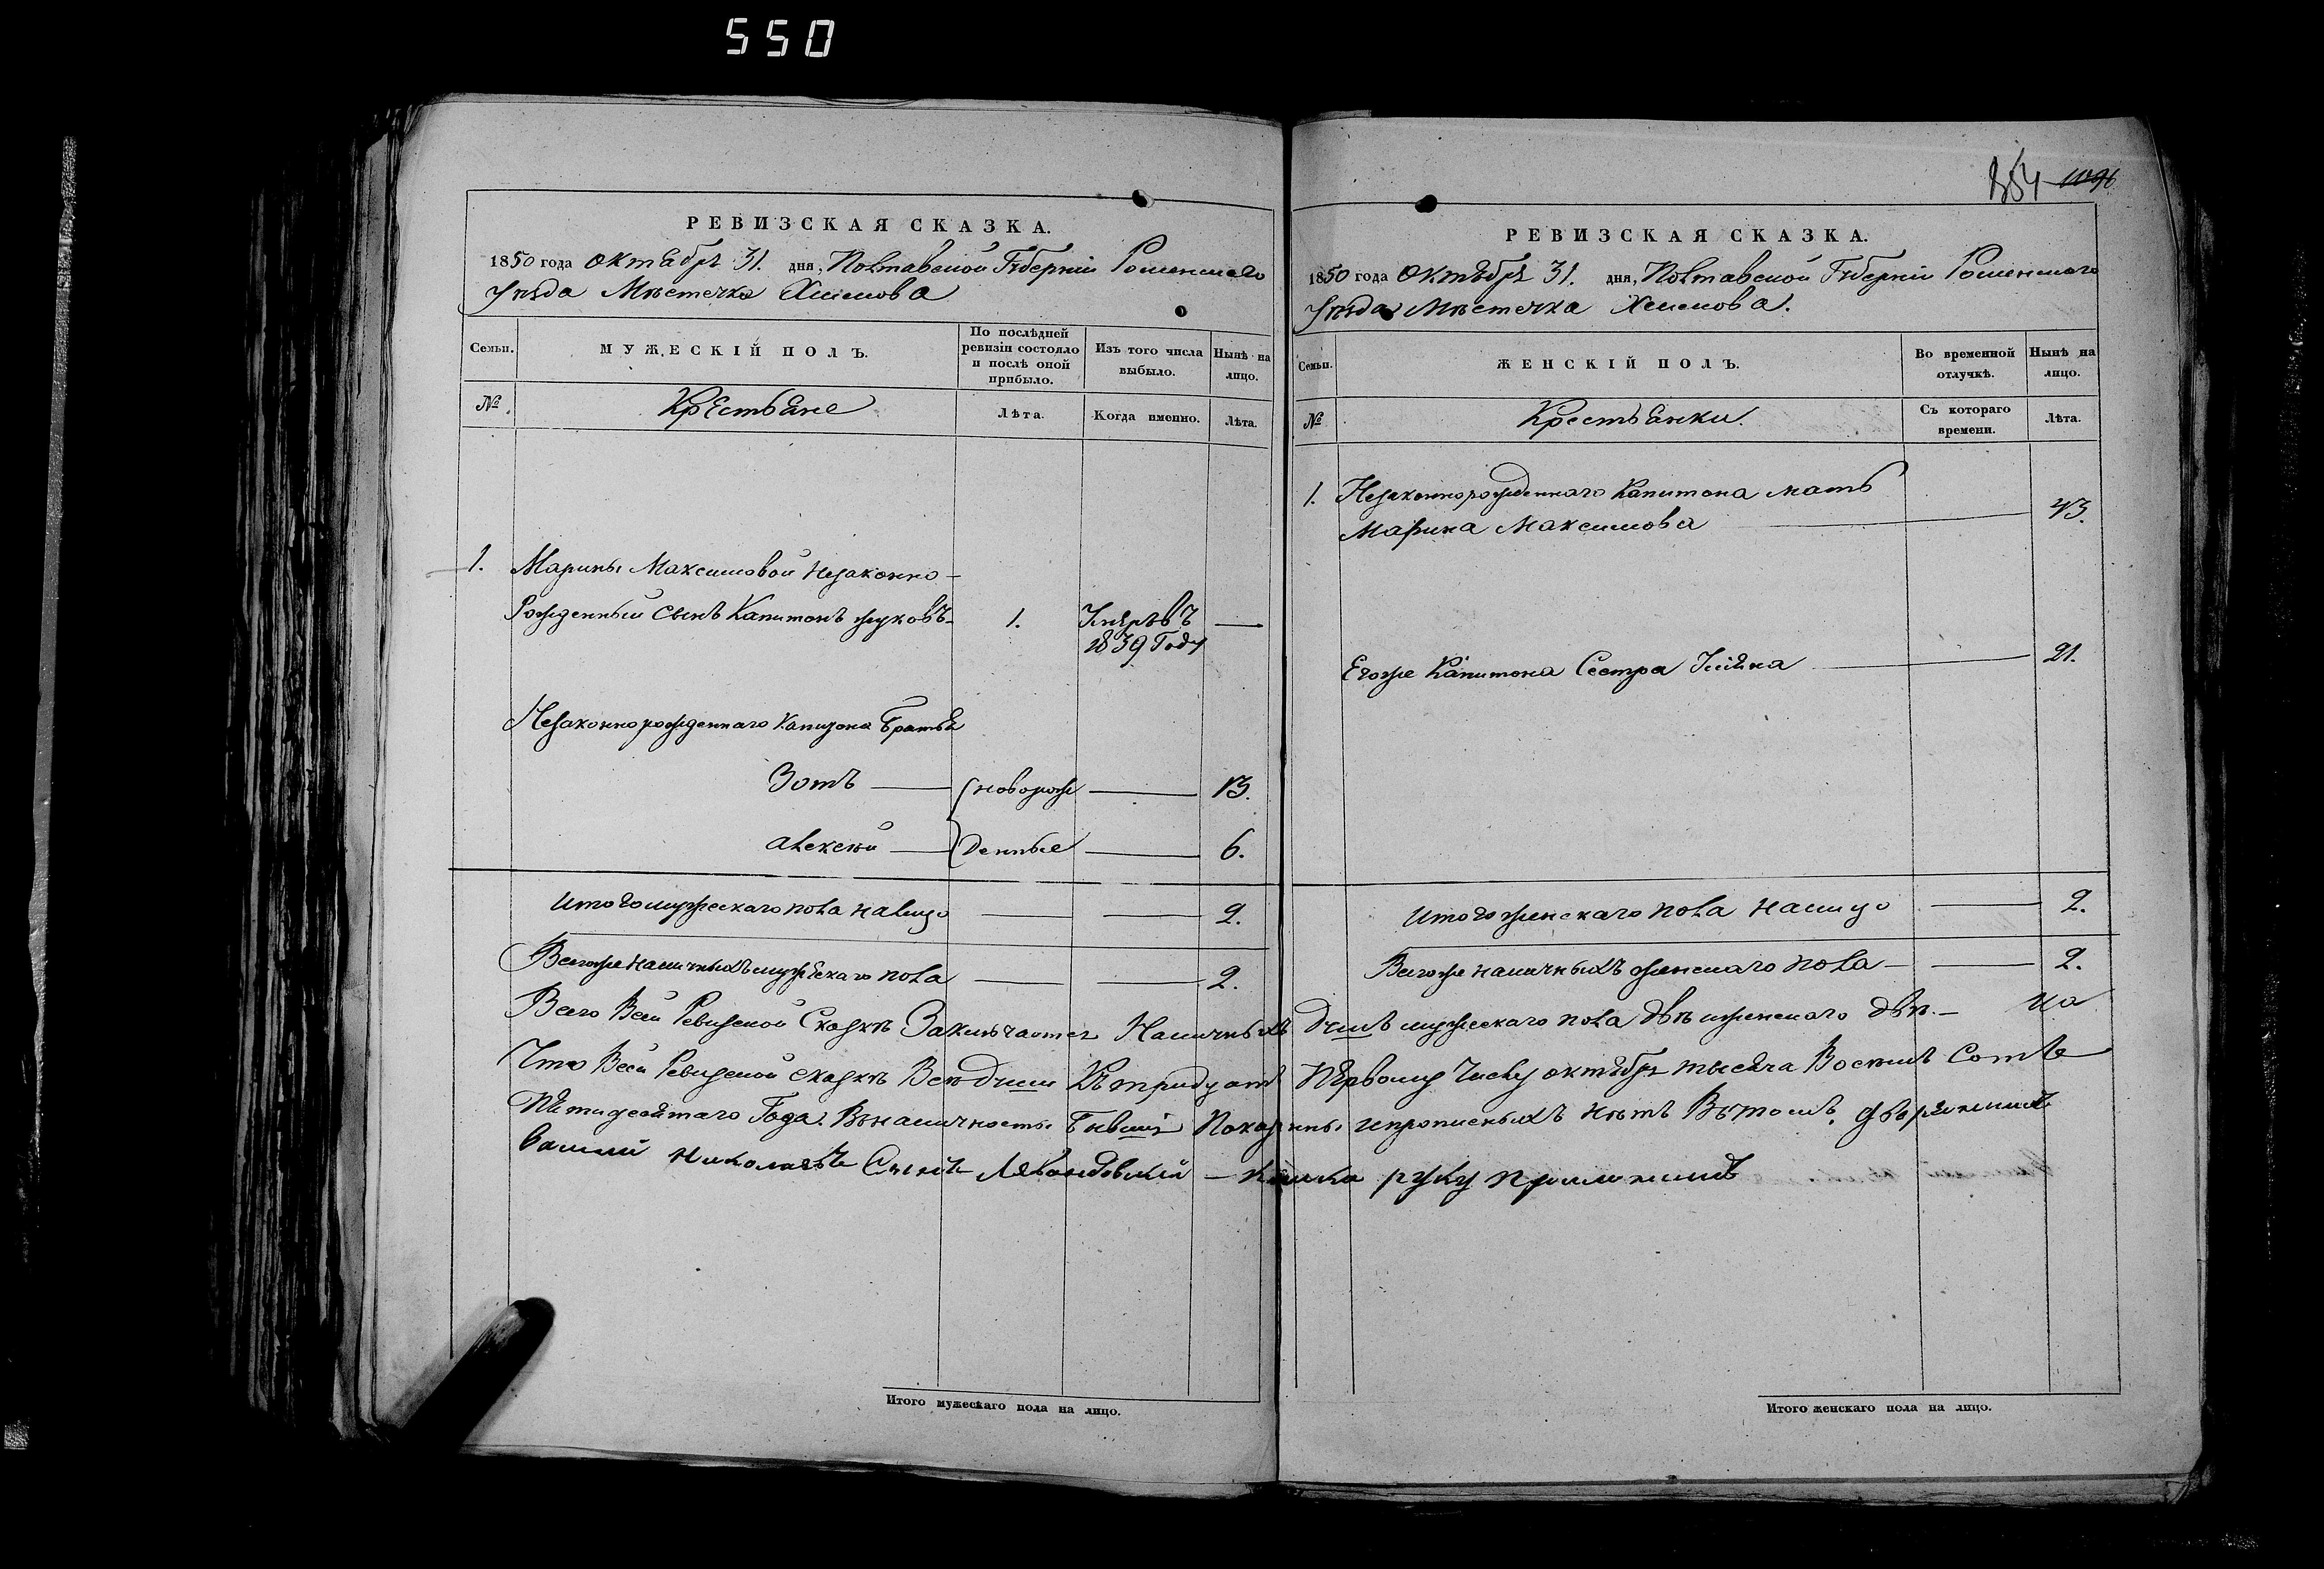 550
854 1196
РЕВИЗСКАЯ СКАЗКА.
1850 года октября 31. дня, Полтавской Губерніи Роменскаго
Уѣзда Мѣстечка Хмелова
Семьи. МУЖЕСКІЙ ПОЛЪ. По послѣдней ревизіи состояло и послѣ оной прибыло. Изъ того числа выбыло. Нынѣ на лицо.
№ Крестьяне Лѣта. Когда именно. Лѣта.
1. Марины Максимовой Незаконно-
Рожденный сынъ Капитонъ Жуковъ 1. Умеръ въ —
1839 Году
Незаконнорожденнаго Капитона Братья
Зотъ — новорож — 13.
Алексѣй — денные — 6.
Итого мужескаго пола налицо — — 2.
Всегоже наличныхъ мужескаго пола — — 2.
Итого мужескаго пола на лицо.
РЕВИЗСКАЯ СКАЗКА.
1850 года Октября 31. дня, Полтавской Губерніи Роменскаго
Уѣзда Мѣстечка Хмелова.
Семьи. ЖЕНСКІЙ ПОЛЪ. Во временной отлучкѣ. Нынѣ на лицо.
№ Крестьянки. Съ котораго времени. Лѣта.
1. Незаконнорожденнаго Капитона мать
Марина Максимова — 43.
Егоже Капитона Сестра — 21.
Итого женскаго пола налицо — 2.
Всегоже наличныхъ женскаго пола — — 2.
Всего Всей Ревизской Сказкѣ Заключается Наличныхъ Душъ мужескаго пола двѣ и женскаго двѣ. — На
Что Всей Ревизской сказкѣ Всѣ души Къ тридцать Первому Числу октября тысяча Восемъ Сотъ
Пятидесятаго Года. Въ наличности Бывшія Показаны и прописныхъ нѣтъ Въ томъ,
Василій Николаевъ Сынъ руку приложилъ
Итого женскаго пола на лицо.